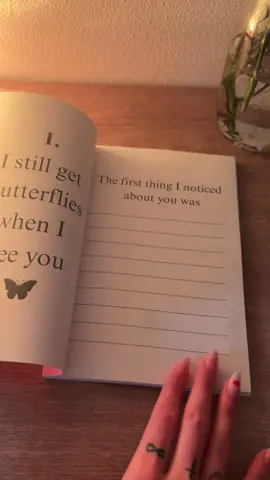 1.
I still get
butterflies
when I
see you
The first thing I noticed
about you was